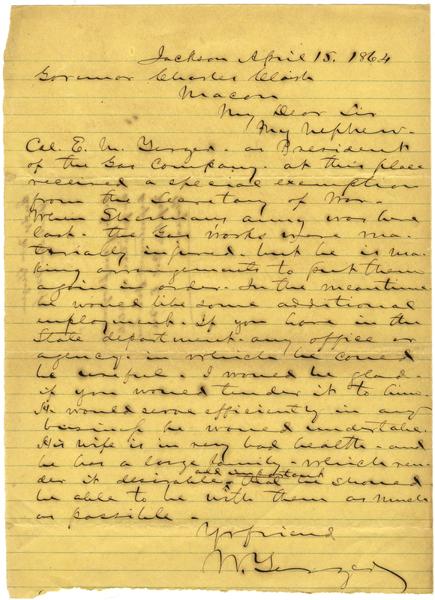 Jackson April 18. 1864
Governor Charles Clark
Macon
My Dear Sir
My nephew-
Col. E. M. Yerger. as President
of the Gas Company. at this place
received a special exemption
from the Secretary of War.
When Shermans army was here
last. the Gas works were ma-
terially injured. but he is ma-
king arrangements to put them
again in order. In the meantime
he would like some additional
employment. If you have in the
State department. any office or
agency. in which he could
be useful. I would be glad-
if you would tender it to him.
He would serve efficiently in any
business he would undertake.
His wife is in very bad health. and
he has a large family. which ren-
der it desirable. and important that he should
be able to be with them as much
as possible.
Yr friend
W. Yerger